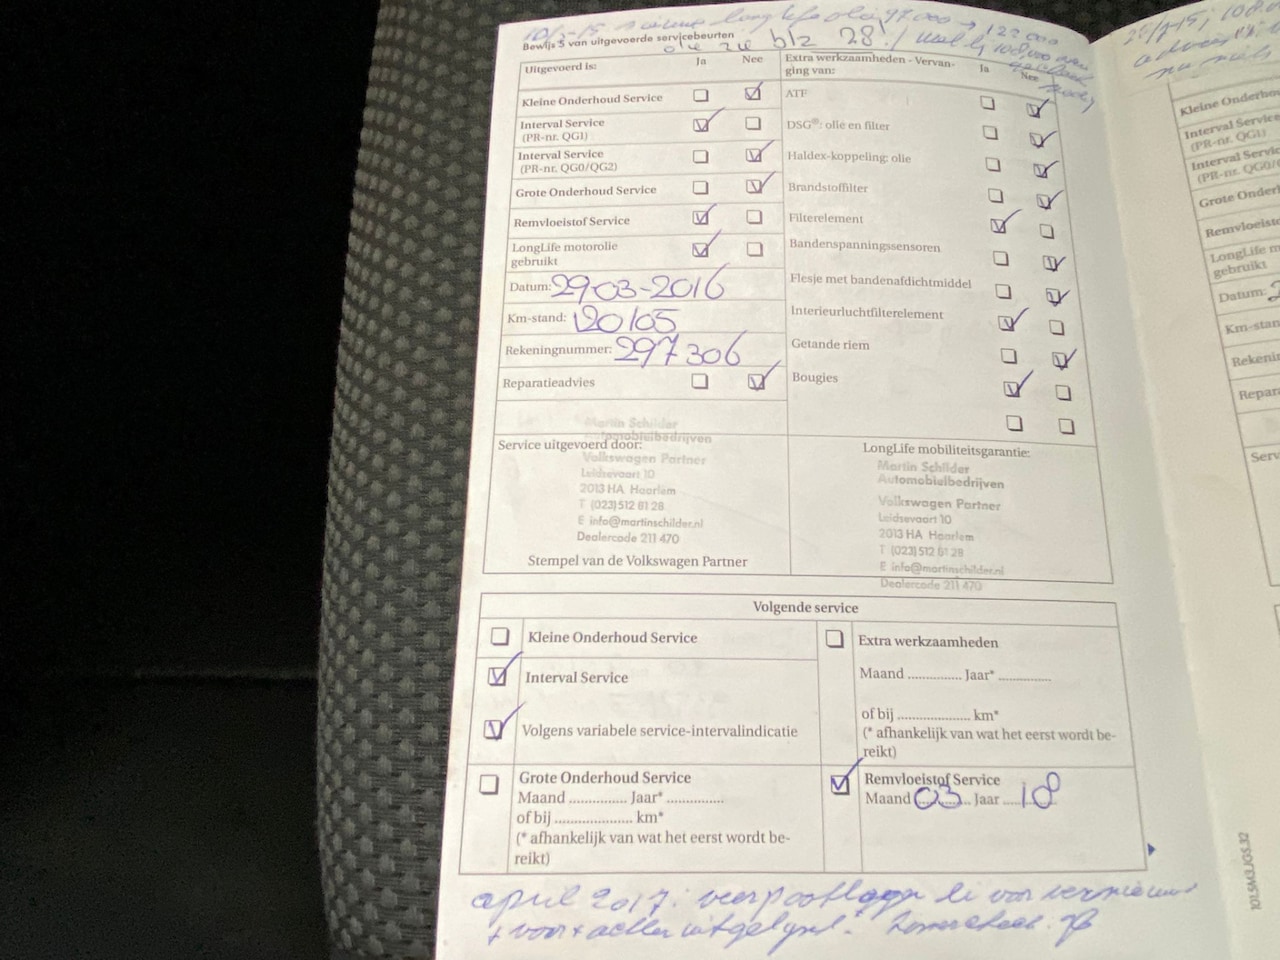 10/3-15 nieuwe longlife olie 97000 → 122000
olie zie blz 28!
Bewijs 5 van uitgevoerde servicebeurten
Uitgevoerd is: Ja Nee
Kleine Onderhoud Service
Interval Service
(PR-nr. QG1)
Interval Service
(PR-nr. QG0/QG2)
Grote Onderhoud Service
Remvloeistof Service
LongLife motorolie
gebruikt
Datum: 29-03-2016
Km-stand: 120105
Rekeningnummer: 297306
Reparatieadvies
Extra werkzaamheden - Vervan-
ging van: Ja Nee
ATF
DSG®: olie en filter
Haldex-koppeling: olie
Brandstoffilter
Filterelement
Bandenspanningssensoren
Flesje met bandenafdichtmiddel
Interieurluchtfilterelement
Getande riem
Bougies
Service uitgevoerd door:
Martin Schilder
Automobielbedrijven
Volkswagen Partner
Leidsevaart 10
2013 HA Haarlem
T (023) 512 81 28
E info@martinschilder.nl
Dealercode 211 470
Stempel van de Volkswagen Partner
LongLife mobiliteitsgarantie:
Martin Schilder
Automobielbedrijven
Volkswagen Partner
Leidsevaart 10
2013 HA Haarlem
T (023) 512 81 28
E info@martinschilder.nl
Dealercode 211 470
Volgende service
Kleine Onderhoud Service
Interval Service
Volgens variabele service-intervalindicatie
Grote Onderhoud Service
Maand .............. Jaar* ..............
of bij .................... km*
(* afhankelijk van wat het eerst wordt be-
reikt)
Extra werkzaamheden
Maand .............. Jaar* ..............
of bij ................... km*
(* afhankelijk van wat het eerst wordt be-
reikt)
Remvloeistof Service
Maand 03 Jaar 18
april 2017: li voor
+ voor + achter uitgelijnd!
101.5M3.JGS.32
Kleine Onderho
Interval Service
(PR-nr. QG1)
Interval Servic
(PR-nr. QG0/
Grote Onder
Remvloeisto
LongLife m
gebruikt
Datum:
Km-stan
Rekenin
Repar
Serv